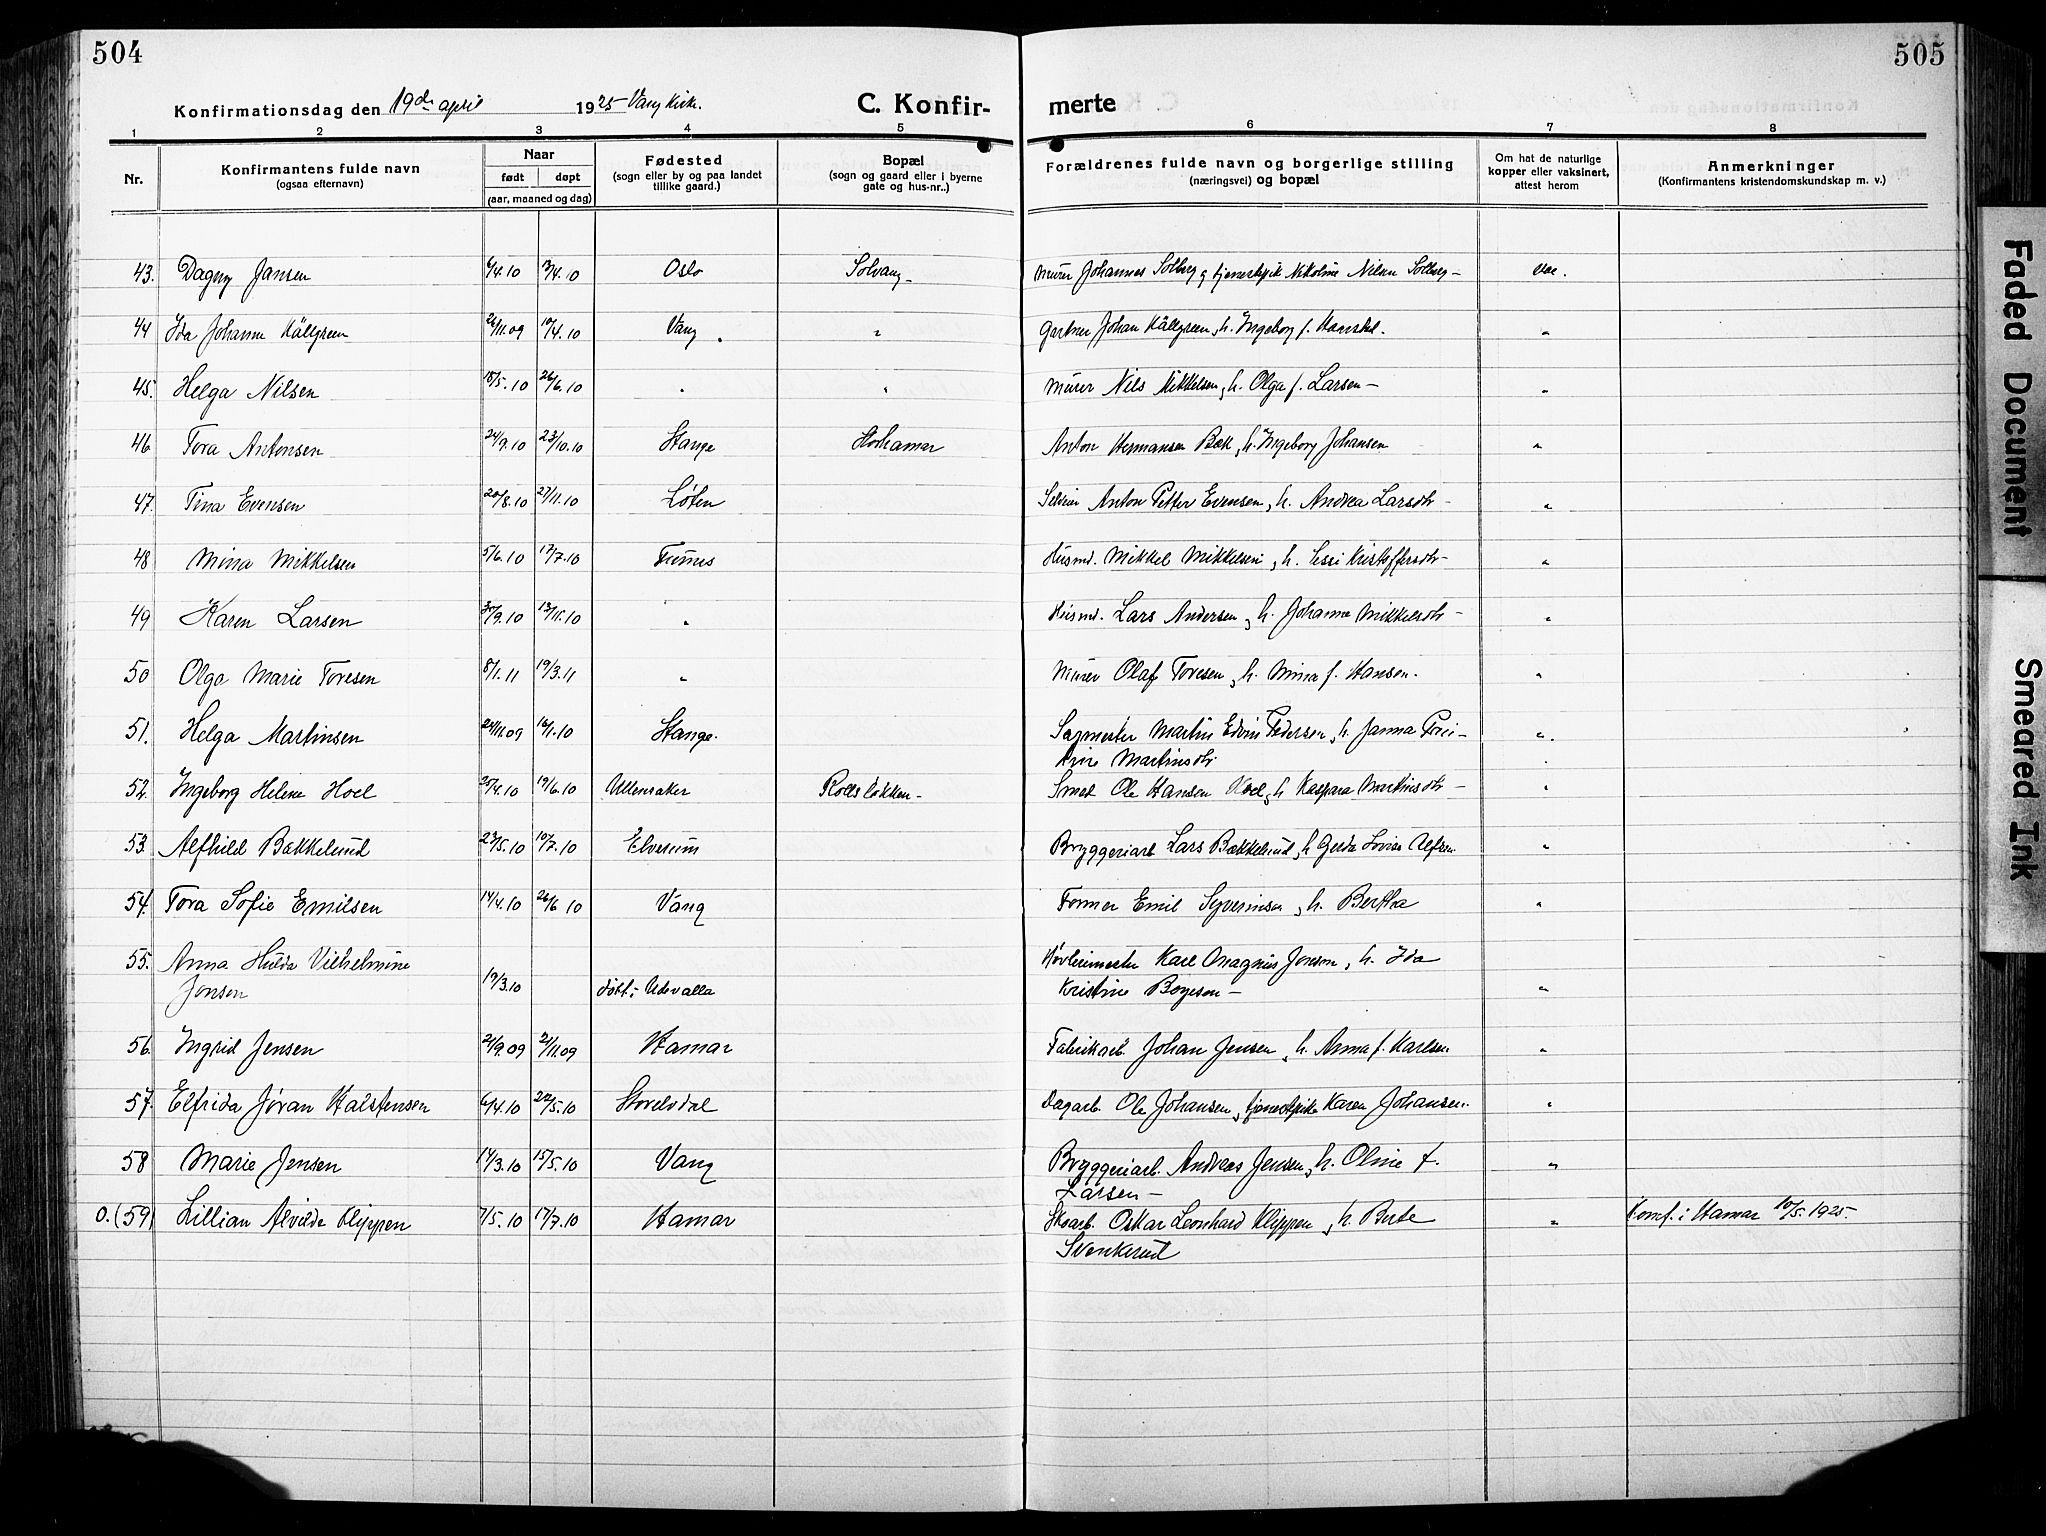 504
505
Konfirmationsdag den 19de april 1925 Vang Kirk.
C. Konfir-
merte
1 2 3 4 5 6 7 8
Nr.
Konfirmantens fulde navn
(ogsaa efternavn)
Naar
født døpt
(aar, maaned og dag)
Fødested
(sogn eller by og paa landet
tillike gaard.)
Bopæl
(sogn og gaard eller i byerne
gate og hus-nr..)
Forældrenes fulde navn og borgerlige stilling
(næringsvei) og bopæl
Om hat de naturlige
kopper eller vaksinert,
attest herom
Anmerkninger
(Konfirmantens kristendomskundskap m. v.)
43. Dagny Jansen 6/4.10 /4.10 Oslo Solvang - Murer Johannes Solberg og tjenestepik Nikoline Nilsen Solberg - vac.
44 Ida Johanne Källgreen 26/11.09 10/4.10 Vang " Gartner Johan Källgreen, h. Ingeborg f. "
45. Helga Nilsen 18/5.10 26/6.10 " " Murer Nils Mikkelsen, h. Olga f. Larsen - "
46 Tora Antonsen 24/9.10 23/10.10 Stange Storhamar Anton Hermansen Bæk, h. Ingeborg Johansen "
47. Tina Evensen 20/8.10 27/11.10 Løten Anton Petter Evensen, h. Andrea Larsdtr - "
48 Mina Mikkelsen 5/6.10 17/7.10 Furnes Husmd. Mikkel Mikkelsen, h. Kristoffersdtr - "
49 Karen Larsen 30/9.10 13/11.10 " Husmd. Lars Andersen, h. Johanne Mikkelsdtr - "
50 Olga Marie Toresen 8/1.11 19/3.11 " Murer Olaf Toresen, h. Mina f. Hansen. "
51. Helga Martinsen 24/11.09 16/1.10 Stange. Sagmester Martin Edvin Pedersen, h. Janna
Martinsdtr "
52. Ingeborg Helene Hoel 25/4.10 19/6.10 Ullensaker Rollsløkken - Smed Ole Hansen Hoel, h Kaspara Martinsdtr - "
53. Alfhild Bækkelund 23/5.10 10/7.10 Elverum Bryggeriarb. Lars Bækkelund, h Gerda Lovise "
54. Tora Sofie Emilsen 14/4.10 26/6 10 Vang Former Emil Syverinsen, h. Bertha "
55. Anna Hulda Vilhelmine Høvlerimester Karl Magnus Jonson, h. Ida
Jonsen 19/3.10 født i Udevalla Kristine Bogeson - "
56. Ingrid Jensen 21/9.09 21/11.09 Hamar Fabrikarb. Johan Jensen, h. Anna f. Karlsen "
57. Elfrida Jøran Halstensen 6/4.10 22/5.10 Storelvdal Dagarb. Ole Johansen, tjenestepike Karen Johansen. "
58 Marie Jensen 14/3.10 15/5.10 Vang Bryggeriarb. Andreas Jensen, h. Oline f.
Larsen - "
0. (59) Lillian Alvilde Klippen 7/5.10 17/7.10 Hamar Skoarb. Oskar Leonhard Klippen, h. Berte
Svenkerud " Konf. i Hamar 10/5. 1925.
Faded Document
Smeared Ink